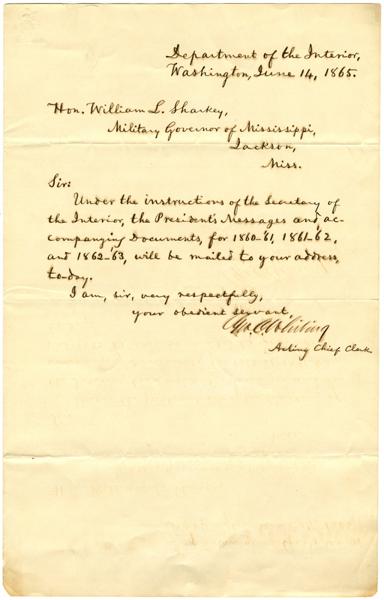 Department of the Interior,
Washington, June 14, 1865.
Hon. William L. Sharkey,
Military Governor of Mississippi,
Jackson,
Miss.
Sir:
Under the instructions of the Secretary of
the Interior, the President's Messages and ac-
companying Documents, for 1860-61, 1861-62,
and 1862-63, will be mailed to your address,
to-day.
I am, sir, very respectfully,
your obedient servant,
Geo. C. Whiting
Acting Chief Clerk